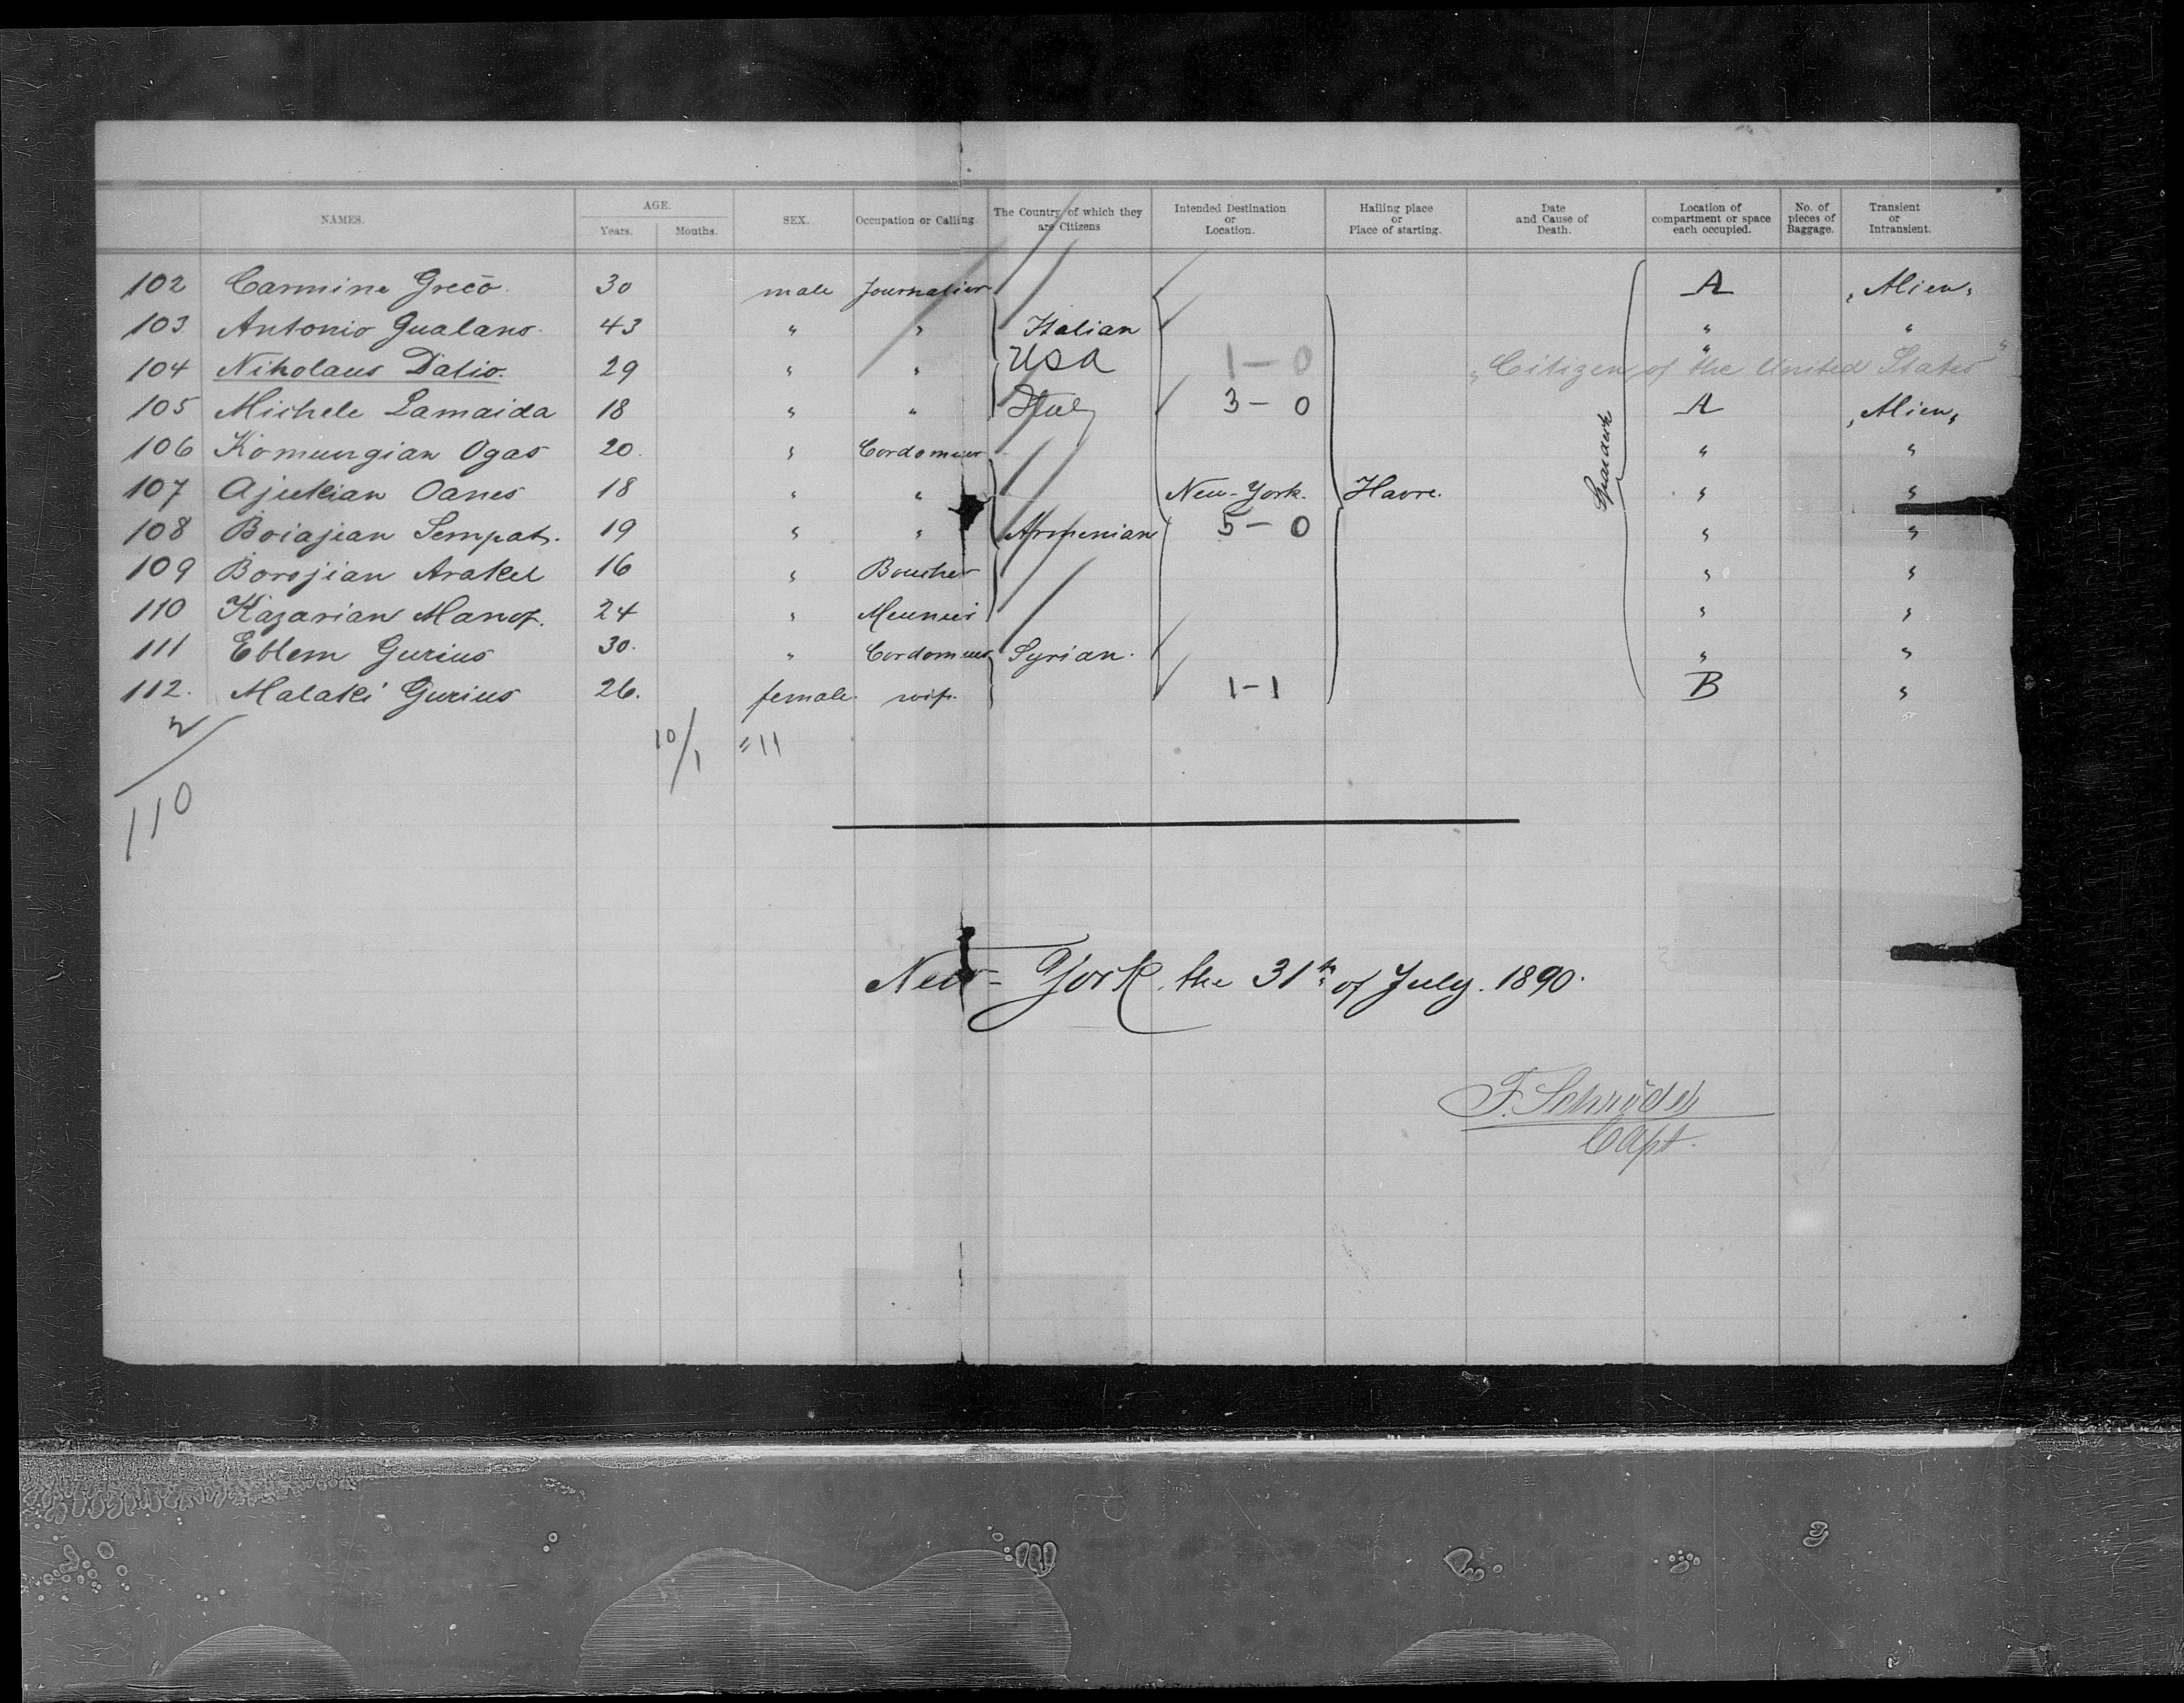 NAMES. AGE. Years. Months. SEX. Occupation or Calling. The Country of which they are Citizens Intended Destination or Location. Hailing place or Place of starting. Date and Cause of Death. Location of compartment or space each occupied. No. of pieces of Baggage. Transient or Intransient.
102 Carmine Greco. 30 male Journalier A "Alien"
103 Antonio Gualano. 43 " " Italian " "
104 Nikolaus Dalio. 29 " " USA 1-0 " "Citizen of the United States"
105 Michele Lamaida 18 " " Italy 3-0 A "Alien"
106 Komurgian Ogas 20. " " "
107 Ajukian Oanes 18 " " New-York. Havre. " "
108 Boiajian Sempat. 19 " " Armenian 5-0 " "
109 Borojian Arakel 16 " Boucher " "
110 Kazarian Manoy. 24 " Meunier " "
111 Eblem Gurius 30. " Syrian. " "
112. Malaki Gurius 26. female. wife. 1-1 B "
2 10/1 = 11
110
New-York, the 31th of July. 1890.
F. Schröder
Capt.